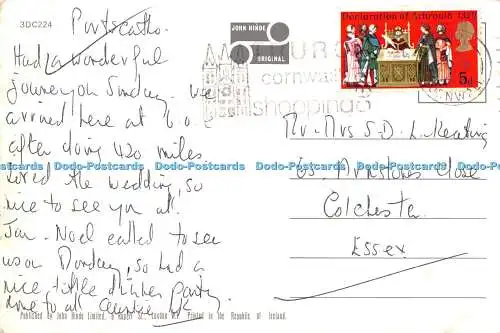 3DC224
Portscatho.
Had a wonderful
journey on Sunday. We
arrived here at 6.0
after doing 420 miles.
Loved the wedding, so
nice to see you all.
Jan. Noel called to see
us on Monday, so had a
nice little dinner party
love to all
JOHN HINDE
ORIGINAL
TRURO
cornwall's
shopping
Declaration of Arbroath 1320
5d
Mr. Mrs S. D. L. Keating
63 Close
Colchester
Essex
Published by John Hinde Limited, Rupert St., London W.1. Printed in the Republic of Ireland.
Dodo-Postcards Dodo-Postcards Dodo-Postcards Dodo-Postcards Dodo-Postcards Dodo-Postcards